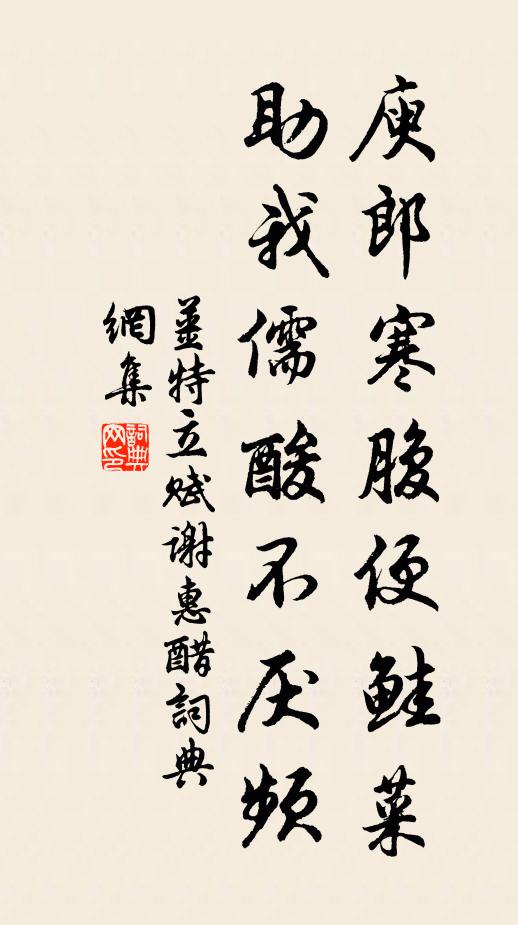 庾郎寒腹便鮭菜
助我儒酸不厌頻
薑特立赋謝惠醋詞典
網集
詞典
网印